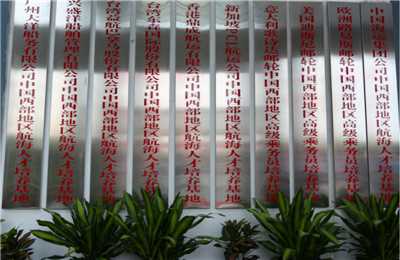 中国海运集团公司中国西部地区航海人才培养基地
欧洲路易斯邮轮中国西部地区高级乘务员培养基地
美国迪斯尼邮轮中国西部地区高级乘务员培养基地
意大利歌诗达邮轮中国西部地区高级乘务员培养基地
新加坡PCL航运公司中国西部地区航海人才培养基地
香港鼎成航运有限公司中国西部地区航海人才培养基地
台湾东森国际股份有限公司中国西部地区航海人才培养基地
台湾益航股份有限公司中国西部地区航海人才培养基地
兴盛洋船舶管理有限公司中国西部地区航海人才培养基地
广州天洋船务有限公司中国西部地区航海人才培养基地